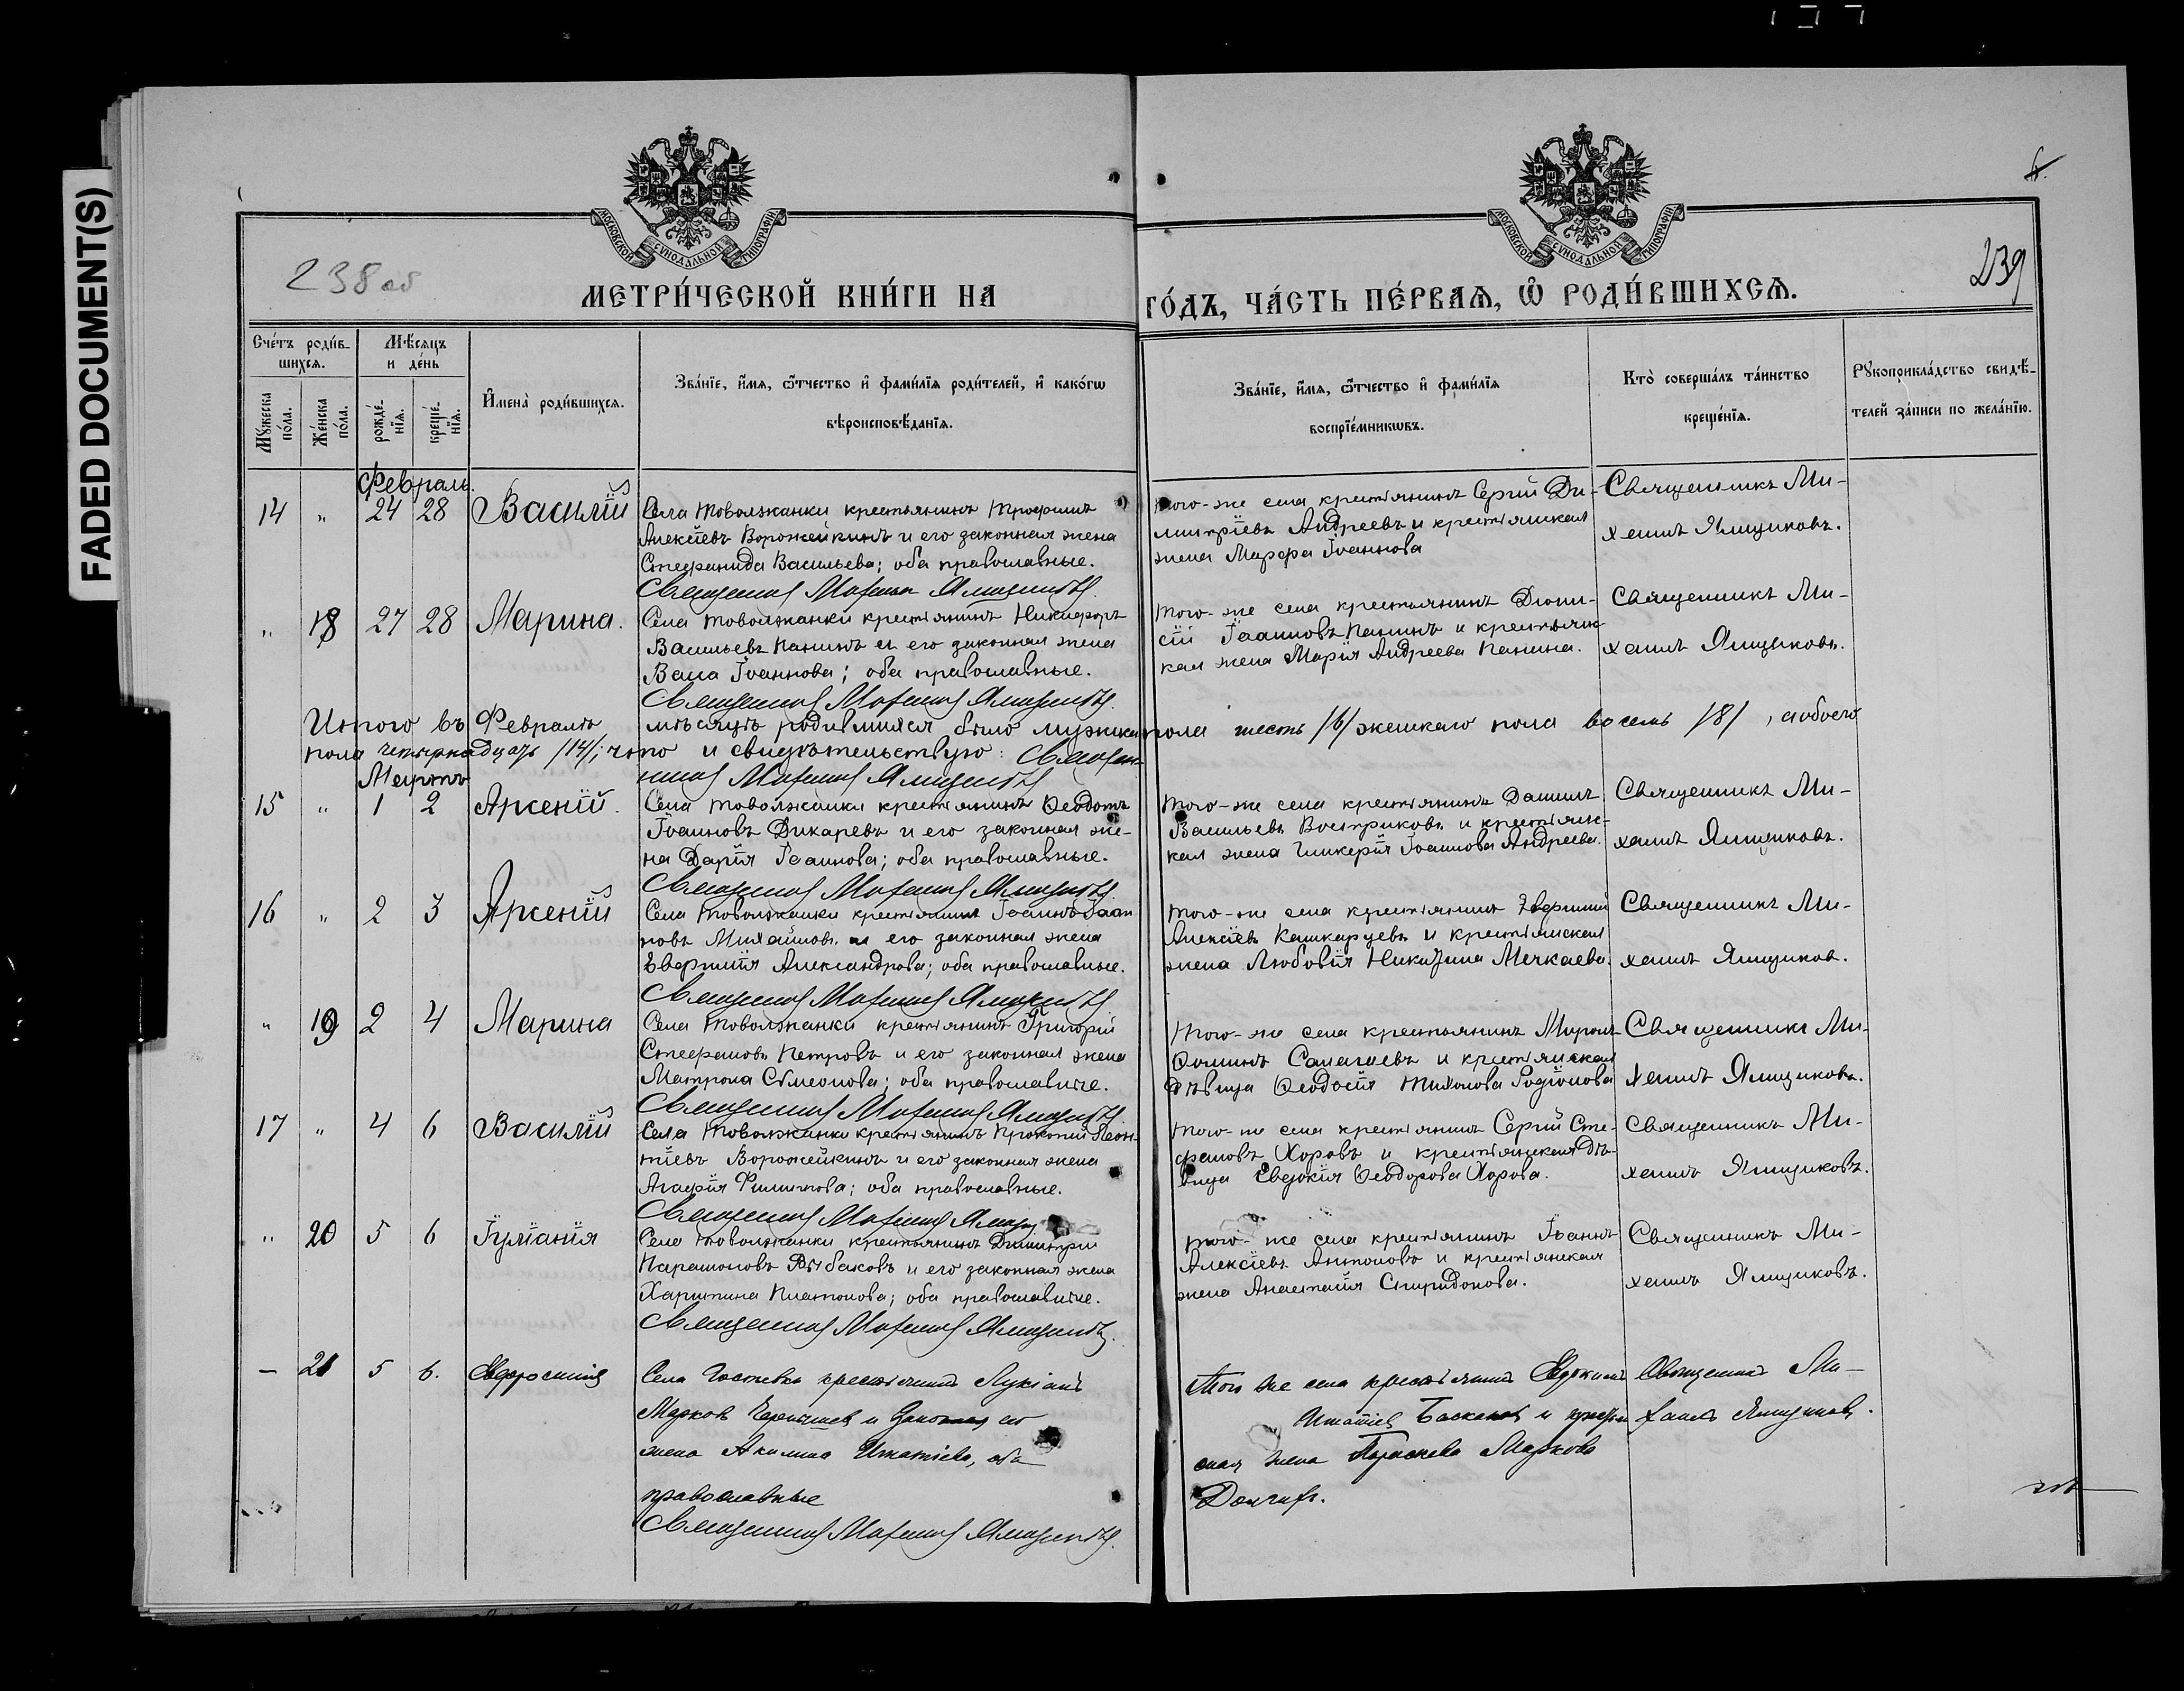 FADED DOCUMENT(S)
МОСКОВСКОЙ СѴНОДАЛЬНОЙ ТИПОГРАФІИ
МОСКОВСКОЙ СѴНОДАЛЬНОЙ ТИПОГРАФІИ
238 об
239
МЕТРИ́ЧЕСКОЙ КНИ́ГИ НА
ГО́ДЪ, ЧА́СТЬ ПЕ́РВАѦ, Ѡ҆ РОДИ́ВШИХСѦ.
Сче́тъ роди́в-
шихсѧ.
Мѣ́сѧцъ
и де́нь
Мꙋ́жеска
по́ла.
Же́нска
по́ла.
рожде́-
нїѧ.
креще́-
нїѧ.
И҆мена̀ роди́вшихсѧ.
Зва́нїе, и҆́мѧ, ѻ҆́тчество и҆ фамі́лїѧ роди́телей, и҆ како́гѡ
вѣроисповѣ́данїѧ.
Зва́нїе, и҆́мѧ, ѻ҆́тчество и҆ фамі́лїѧ
воспрїе́мникѡвъ.
Кто̀ соверша́лъ та́инство
креще́нїѧ.
Рꙋкоприкла́дство свидѣ́-
телей за́писи по жела́нїю.
Февраль.
14 " 24 28 Василій
Села Товолжанки крестьянинъ Трофимъ
Алексіевъ Ворожейкинъ и его законная жена
Стефанида Васильева; оба православные.
Священникъ Михаилъ Ямщиковъ.
того-же села крестьянинъ Сергій Ди-
митріевъ Андреевъ и крестьянская
жена Марфа Іоаннова
Священникъ Ми-
хаилъ Ямщиковъ.
" 18 27 28 Марина.
Села Товолжанки крестьянинъ Никифоръ
Васильевъ Панинъ и его законная жена
Васса Іоаннова; оба православные.
Священникъ Михаилъ Ямщиковъ.
того-же села крестьянинъ Діони-
сій Іоанновъ Панинъ и крестьян-
кая жена Марія Андреева Панина.
Священникъ Ми-
хаилъ Ямщиковъ.
Итого въ Февралѣ мѣсяцѣ родившихся было мужска пола шесть /6/ женскаго пола восемь /8/, а обоего
пола четырнадцать /14/; что и свидѣтельствую: Священ-
никъ Михаилъ Ямщиковъ
Мартъ
15 " 1 2 Арсеній.
Села Товолжанки крестьянинъ Ѳеодотъ
Іоанновъ Дикаревъ и его законная же-
на Дарія Іоаннова; оба православные.
Священникъ Михаилъ Ямщиковъ.
того-же села крестьянинъ Даніилъ
Васильевъ Востриковъ и крестьян-
кая жена Гликерія Іоаннова Андреева.
Священникъ Ми-
хаилъ Ямщиковъ.
16 " 2 3 Арсеній
Села Товолжанки крестьянинъ Іоаннъ Іоан
новъ Михайловъ и его законная жена
Евфимія Александрова; оба православные.
Священникъ Михаилъ Ямщиковъ
того-же села крестьянинъ
Алексіевъ Кашкарцевъ и крестьянская
жена Любовія Никитина Мечкаева.
Священникъ Ми-
хаилъ Ямщиков.
" 19 2 4 Марина
Села Товолжанки крестьянинъ Григорій
Стефановъ Петровъ и его законная жена
Матрона Сѵмеонова; оба православные.
Священникъ Михаилъ Ямщиковъ.
того-же села крестьянинъ Миронъ
Ѳоминъ Салагаевъ и крестьянская
дѣвица Ѳеодосія Тихонова Родіонова
Священникъ Ми-
хаилъ Ямщиковъ.
17 " 4 6 Василій
Села Товолжанки крестьянинъ Прокопій Леон-
тіевъ Ворожейкинъ и его законная жена
Агафія Филиппова; оба православные.
Священникъ Михаилъ
того-же села крестьянинъ Сергій Сте-
фановъ Хоровъ и крестьянская дѣ-
вица Евдокія Ѳеодорова Хорова.
Священникъ Ми-
хаилъ Ямщиковъ.
" 20 5 6 Іуліанія
Села Товолжанки крестьянинъ Димитрій
Парамоновъ Рыбаковъ и его законная жена
Харитина Платонова; оба православные.
Священникъ Михаилъ Ямщиковъ.
того-же села крестьянинъ Іоаннъ
Алексіевъ Антоновъ и крестьянская
жена Анастасія Спиридонова.
Священникъ Ми-
хаилъ Ямщиковъ.
— 21 5 6. Евфросинія
Села крестьянинъ Лукіанъ
Марковъ и законная его
жена Акилина Игнатіева, оба
православные
Священникъ Михаилъ Ямщиковъ.
Того же села крестьянинъ Евдокимъ
Игнатіев и крестьян
ская жена Параскева Маркова
Священникъ Ми-
хаилъ Ямщиковъ.